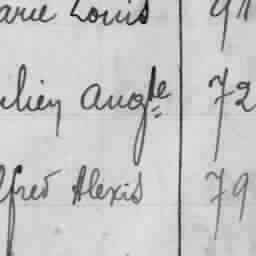 arie Louis 91
ulien Aug^te 72
lfred Alexis 79